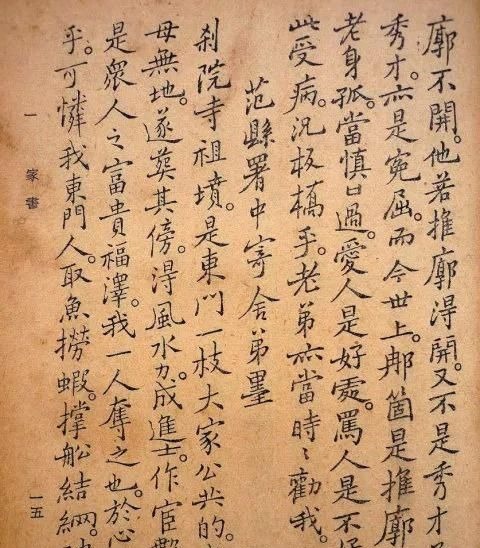 廓不開。他若推廓得開。又不是秀才
秀才。亦是寃屈。而今世上。郍箇是推廓
老身孤。當慎口過。愛人是好處。罵人是不
此受病。況板橋乎。老弟亦當時〻勸我。
范縣署中寄舍弟墨
刹院寺祖墳。是東門一枝大家公共的。
母無地。遂葬其傍。得風水力。成進士。作宦數
是衆人之富貴福澤。我一人奪之也。於心
乎。可憐我東門人。取魚撈蝦。撐舩結網。
一 家書 一五